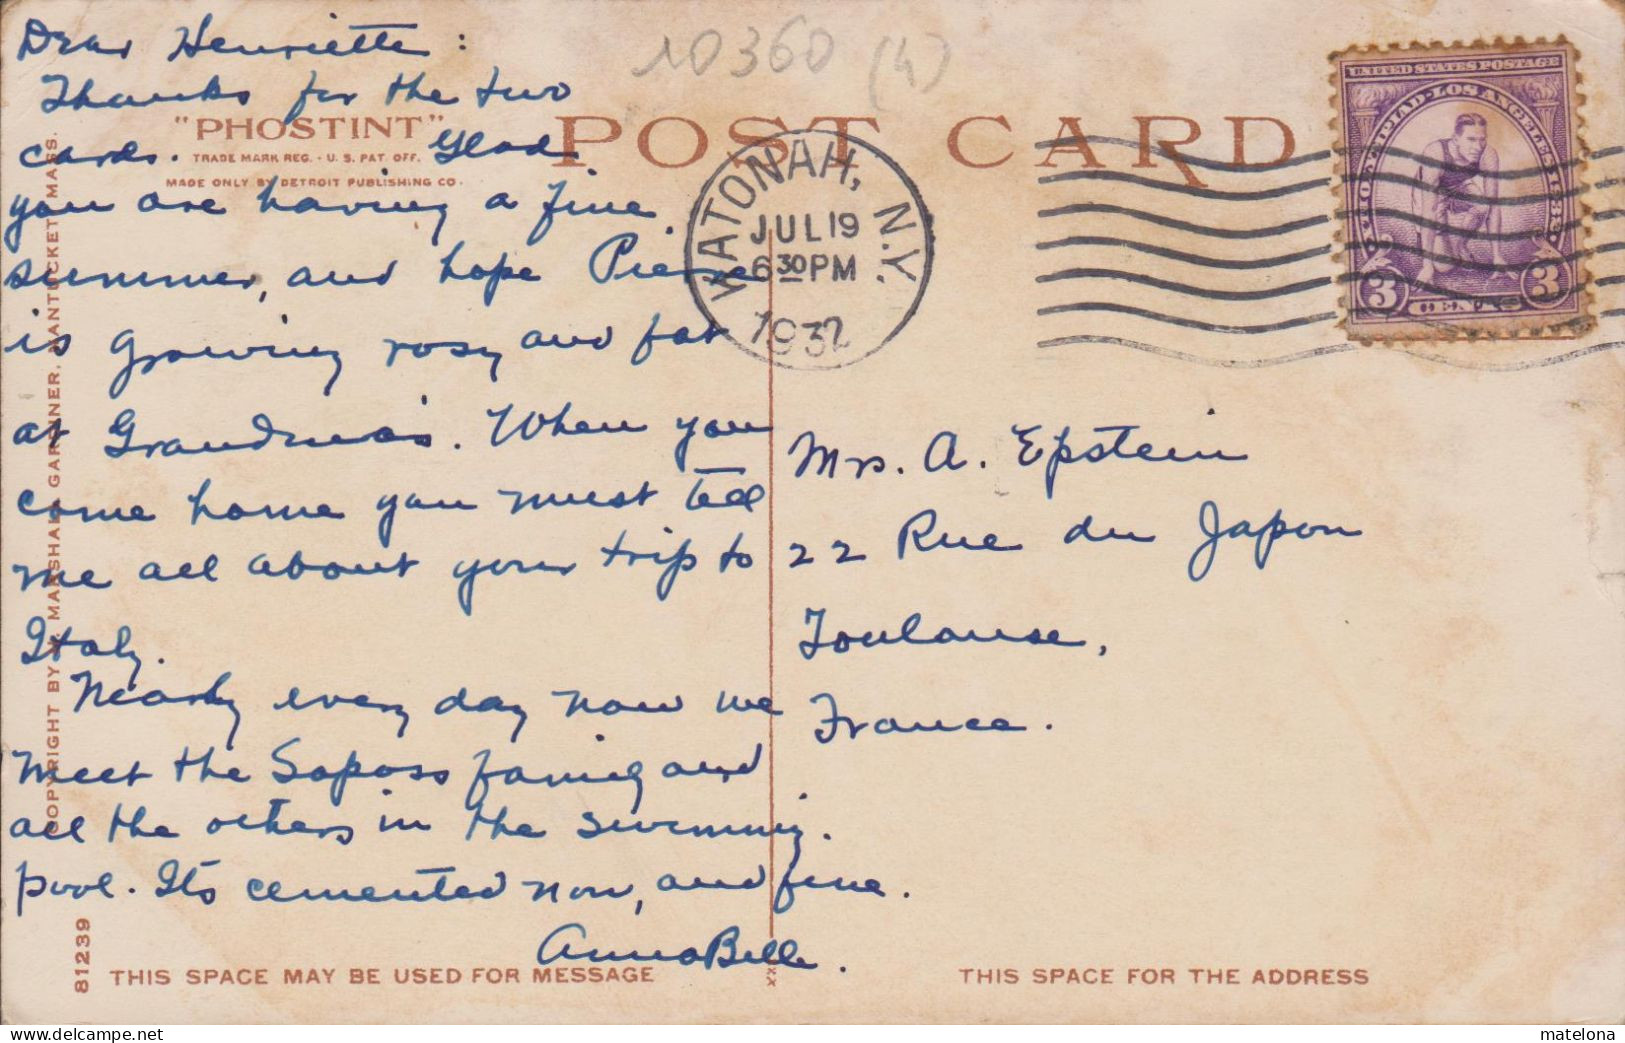 Dear Henriette:
Thanks for the two
cards. Glad
you are having a fine
summer, and hope Pierre
is growing rosy and fat
at Grandma's. When you
come home you must tell
me all about your trip to
Italy.
Nearly every day now we
meet the Saposs family and
all the others in the swimming
pool. It's cemented now, and fine.
AnnaBelle.
10360 (4)
"PHOSTINT"
TRADE MARK REG. - U. S. PAT. OFF.
MADE ONLY BY DETROIT PUBLISHING CO.
POST CARD
KATONAH, N.Y.
JUL 19
6 30 PM
1932
UNITED STATES POSTAGE
XTH OLYMPIAD · LOS ANGELES 1932
3 CENTS 3
Mrs. A. Epstein
22 Rue du Japon
Toulouse,
France.
COPYRIGHT BY H. MARSHALL GARDINER, NANTUCKET, MASS.
81239
THIS SPACE MAY BE USED FOR MESSAGE
THIS SPACE FOR THE ADDRESS
www.delcampe.net
matelona